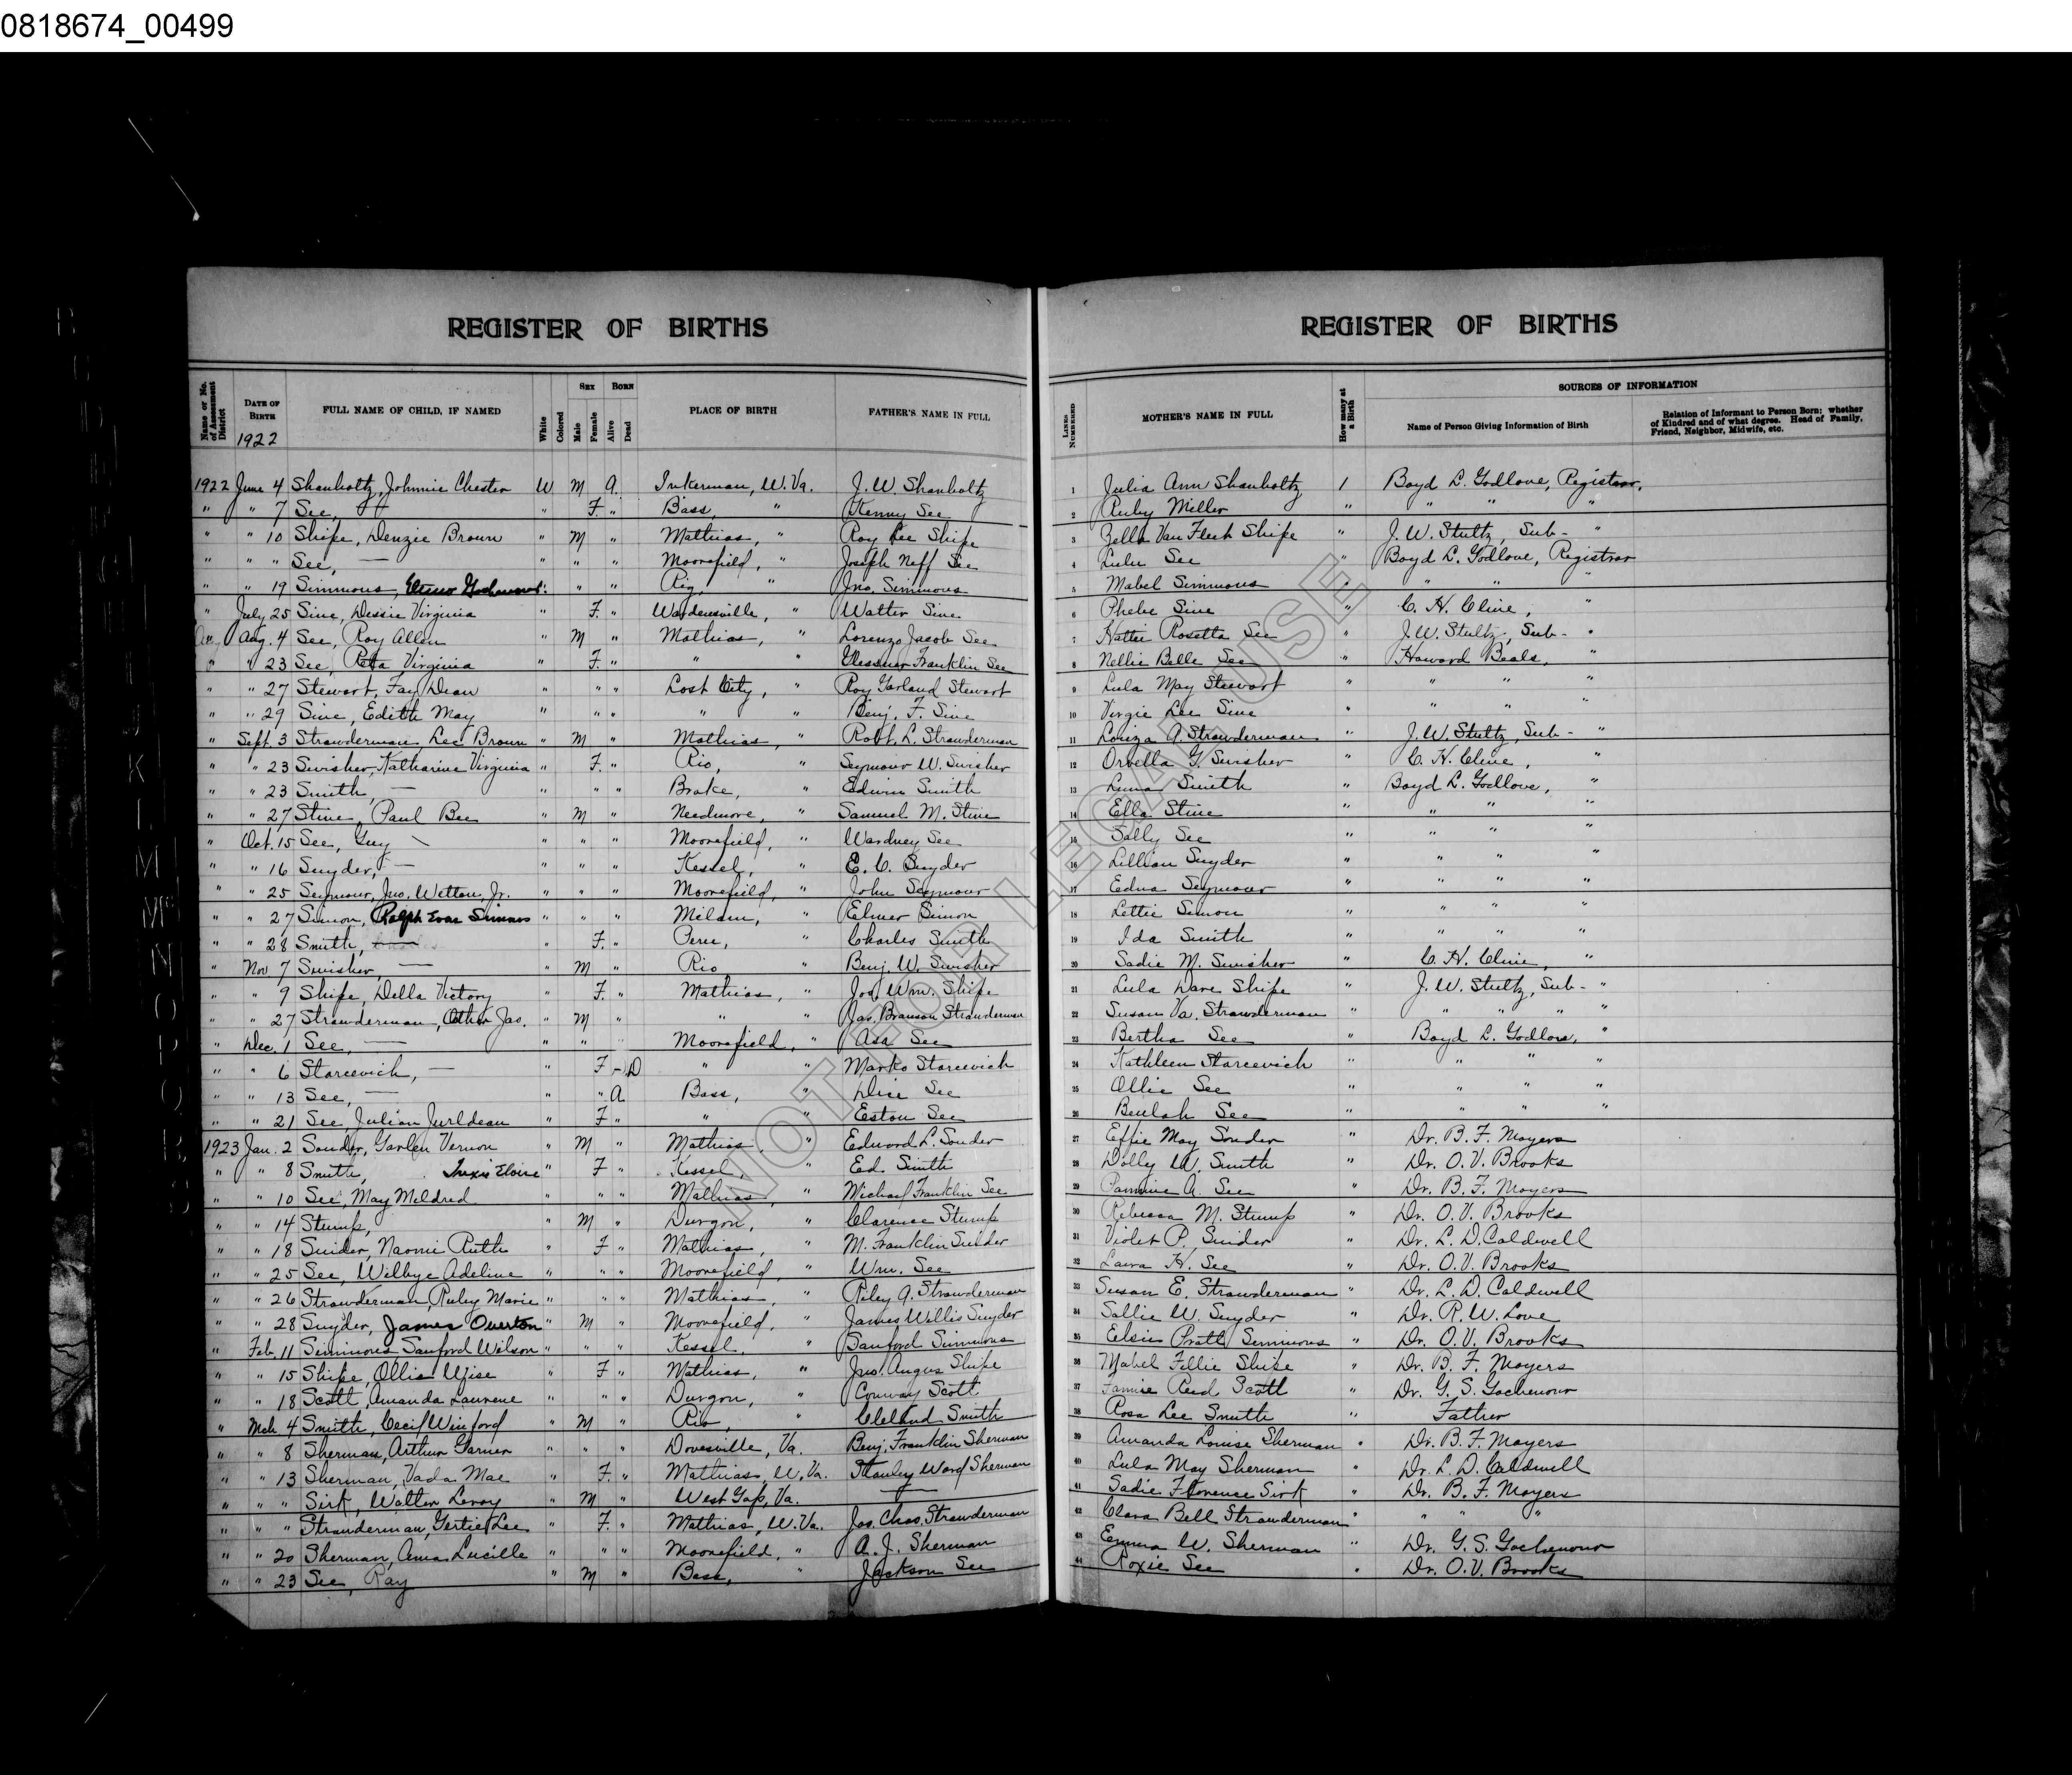 0818674_00499
REGISTER OF BIRTHS
Name or No. of Assessment District | DATE OF BIRTH 1922 | FULL NAME OF CHILD, IF NAMED | White | Colored | SEX Male Female | BORN Alive Dead | PLACE OF BIRTH | FATHER'S NAME IN FULL
1922 June 4 Shanholtz, Johnnie Chester W M A. Inkerman, W. Va. J. W. Shanholtz
" " 7 See, — " F. " Bass, " Kenny See
" " 10 Shipe, Denzie Brown " M " Mathias, " Roy Lee Shipe
" " " See, — " " " Moorefield, " Joseph Neff See
" " 19 Simmons, " " " Rig, " Jno. Simmons
" July 25 Sine, Dessie Virginia " F. " Wardensville, " Walter Sine
Aug. 4 See, Roy Allen " M " Mathias, " Lorenzo Jacob See
" " 23 See, Reta Virginia " F. " " " Franklin See
" " 27 Stewart, Fay Dean " " " Lost City, " Roy Garland Stewart
" " 29 Sine, Edith May " " " " " Benj. F. Sine
" Sept. 3 Strawderman, Lee Brown " M " Mathias, " Robt. L. Strawderman
" " 23 Swisher, Katharine Virginia " F. " Rio, " Seymour W. Swisher
" " 23 Smith, — " " " Brake, " Edwin Smith
" " 27 Stine, Paul Bee " M " Needmore, " Samuel M. Stine
" Oct. 15 See, Guy " " " Moorefield, " Wardney See
" " 16 Snyder, — " " " Kessel, " E. C. Snyder
" " 25 Seymour, Jno. Welton, Jr. " " " Moorefield, " John Seymour
" " 27 Simon, Ralph Evan Simmons " " " Milam, " Elmer Simon
" " 28 Smith, — " F. " Peru, " Charles Smith
" Nov 7 Swisher, — " M " Rio, " Benj. W. Swisher
" " 9 Shipe, Della Victory " F. " Mathias, " Jos. Wm. Shipe
" " 27 Strawderman, Other Jas. " M " " " Jas. Branson Strawderman
" Dec. 1 See, — " " " Moorefield, " Asa See
" " 6 Starcevich, — " F - D " " Marko Starcevich
" " 13 See, — " " A Bass, " Dice See
" " 21 See, Julian Jurldean " F " " " Eston See
1923 Jan. 2 Souder, Garlen Vernon " M " Mathias, " Edward L. Souder
" " 8 Smith, Eloise " F " Kessel, " Ed. Smith
" " 10 See, May Mildred " " " Mathias, " Michael Franklin See
" " 14 Stump, " M " Durgon, " Clarence Stump
" " 18 Snider, Naomi Ruth " F " Mathias, " M. Franklin Snider
" " 25 See, Wilbye Adeline " " " Moorefield, " Wm. See
" " 26 Strawderman, Ruby Marie " " " Mathias, " Riley A. Strawderman
" " 28 Snyder, James Overton " M " Moorefield, " James Willis Snyder
" Feb. 11 Simmons, Sanford Wilson " " " Kessel, " Sanford Simmons
" " 15 Shipe, Ollie Wise " F " Mathias, " Jno. Angus Shipe
" " 18 Scott, Amanda Laurene " " " Durgon, " Conway Scott
" Mch 4 Smith, Cecil Winford " M " Rio, " Cleland Smith
" " 8 Sherman, Arthur Garner " " " Dovesville, Va. Benj. Franklin Sherman
" " 13 Sherman, Vada Mae " F. " Mathias, W. Va. Stanley Ward Sherman
" " " Sirk, Walter Leroy " M " West Gap, Va. —
" " " Strawderman, Gertie Lee " F. " Mathias, W. Va. Jos. Chas. Strawderman
" " 20 Sherman, Ama Lucille " " " Moorefield, " A. J. Sherman
" " 23 See, Ray " M " Bass, " Jackson See
REGISTER OF BIRTHS
LINES NUMBERED | MOTHER'S NAME IN FULL | How many at a Birth | SOURCES OF INFORMATION
Name of Person Giving Information of Birth | Relation of Informant to Person Born; whether of Kindred and of what degree. Head of Family, Friend, Neighbor, Midwife, etc.
1 Julia Ann Shanholtz 1 Boyd L. Godlove, Registrar.
2 Ruby Miller " " " "
3 Zella Van Fleet Shipe " J. W. Stultz, Sub- "
4 Lulu See " Boyd L. Godlove, Registrar
5 Mabel Simmons " " " "
6 Phebe Sine " C. H. Cline, "
7 Hattie Rosetta See " J. W. Stultz, Sub- "
8 Nellie Belle See " Howard Beals, "
9 Lula May Stewart " " " "
10 Virgie Lee Sine " " " "
11 Louiza A Strawderman " J. W. Stultz, Sub- "
12 Orvella G. Swisher " C. H. Cline, "
13 Lena Smith " Boyd L. Godlove, "
14 Ella Stine " " " "
15 Sally See " " " "
16 Lillian Snyder " " " "
17 Edna Seymour " " " "
18 Lettie Simon " " " "
19 Ida Smith " " " "
20 Sadie M. Swisher " C. H. Cline, "
21 Lula Dare Shipe " J. W. Stultz, Sub- "
22 Susan Va. Strawderman " " " " "
23 Bertha See " Boyd L. Godlove, "
24 Kathleen Starcevich " " " "
25 Ollie See " " " "
26 Beulah See " " " "
27 Effie May Souder " Dr. B. F. Moyers
28 Dolly W. Smith " Dr. O. V. Brooks
29 A. See " Dr. B. F. Moyers
30 Rebecca M. Stump " Dr. O. V. Brooks
31 Violet P. Snider " Dr. L. D. Caldwell
32 Laura H. See " Dr. O. V. Brooks
33 Susan E. Strawderman " Dr. L. D. Caldwell
34 Sallie W. Snyder " Dr. R. W. Love
35 Elsie Pratt Simmons " Dr. O. V. Brooks
36 Mabel Fillie Shipe " Dr. B. F. Moyers
37 Fannie Reed Scott " Dr. G. S. Gochenour
38 Rosa Lee Smith " Father
39 Amanda Louise Sherman " Dr. B. F. Moyers
40 Lula May Sherman " Dr. L. D. Caldwell
41 Sadie Florence Sirk " Dr. B. F. Moyers
42 Clara Bell Strawderman " " " "
43 Emma W. Sherman " Dr. G. S. Gochenour
44 Roxie See " Dr. O. V. Brooks
NOT FOR LEGAL USE